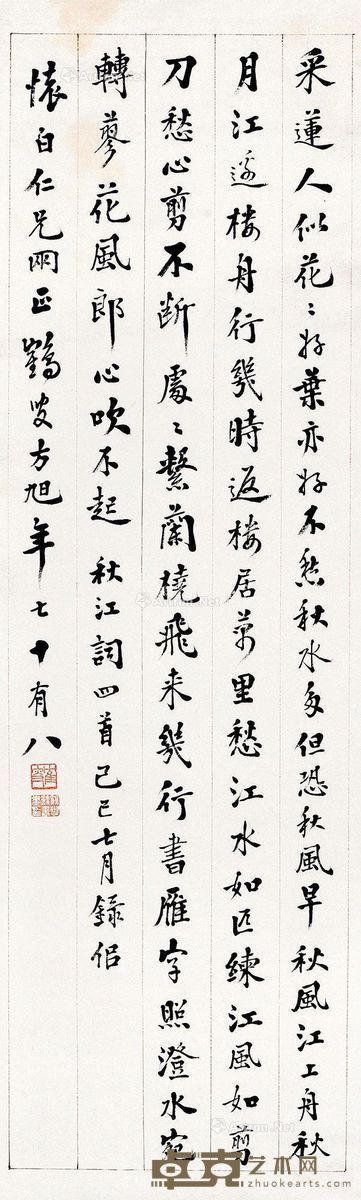 采蓮人似花〻好葉亦好不愁秋水多但恐秋風早秋風江上舟秋
月江邊樓舟行幾時返樓居萬里愁江水如匹練江風如剪
刀愁心剪不斷處〻繫蘭橈飛来幾行書雁字照澄水宛
轉蓼花風郎心吹不起 秋江詞四首己巳七月錄佀
懷白仁兄哂正鶴叟方旭年七十有八
卓克艺术网
www.zhuokearts.com